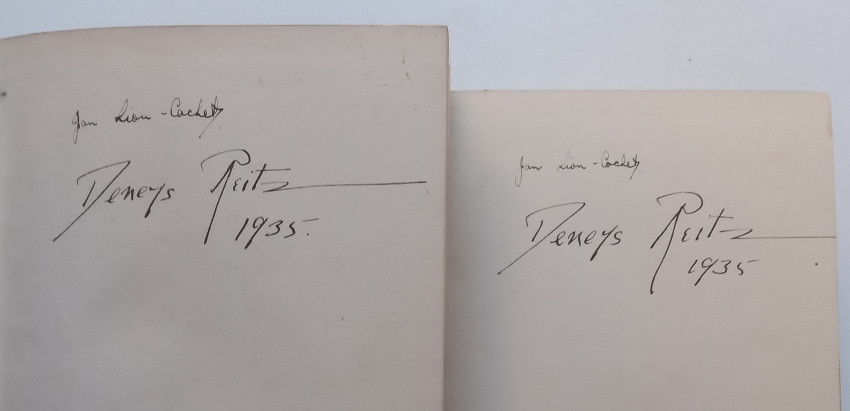 Jan Lion-Cachet
Deneys Reitz
1935.
Jan Lion-Cachet
Deneys Reitz
1935